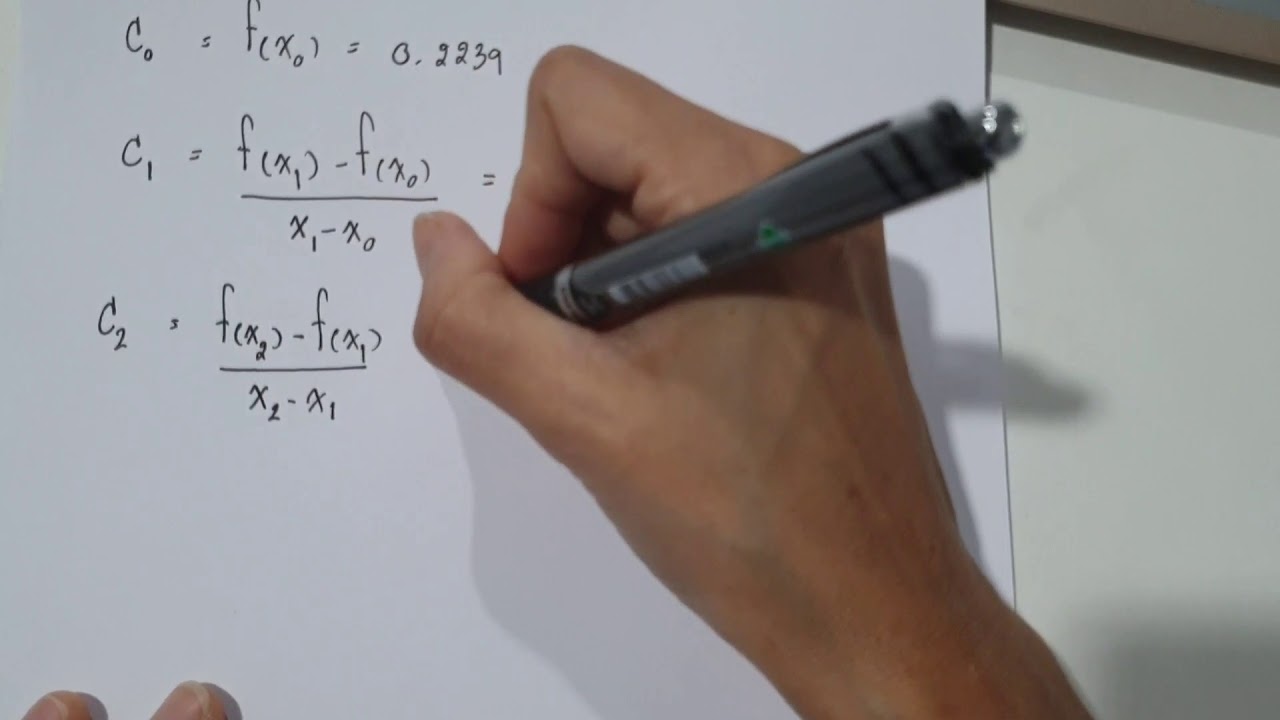 C₀ = f(x₀) = 0.2239
C₁ = f(x₁) - f(x₀) =
x₁ - x₀
C₂ = f(x₂) - f(x₁)
x₂ - x₁